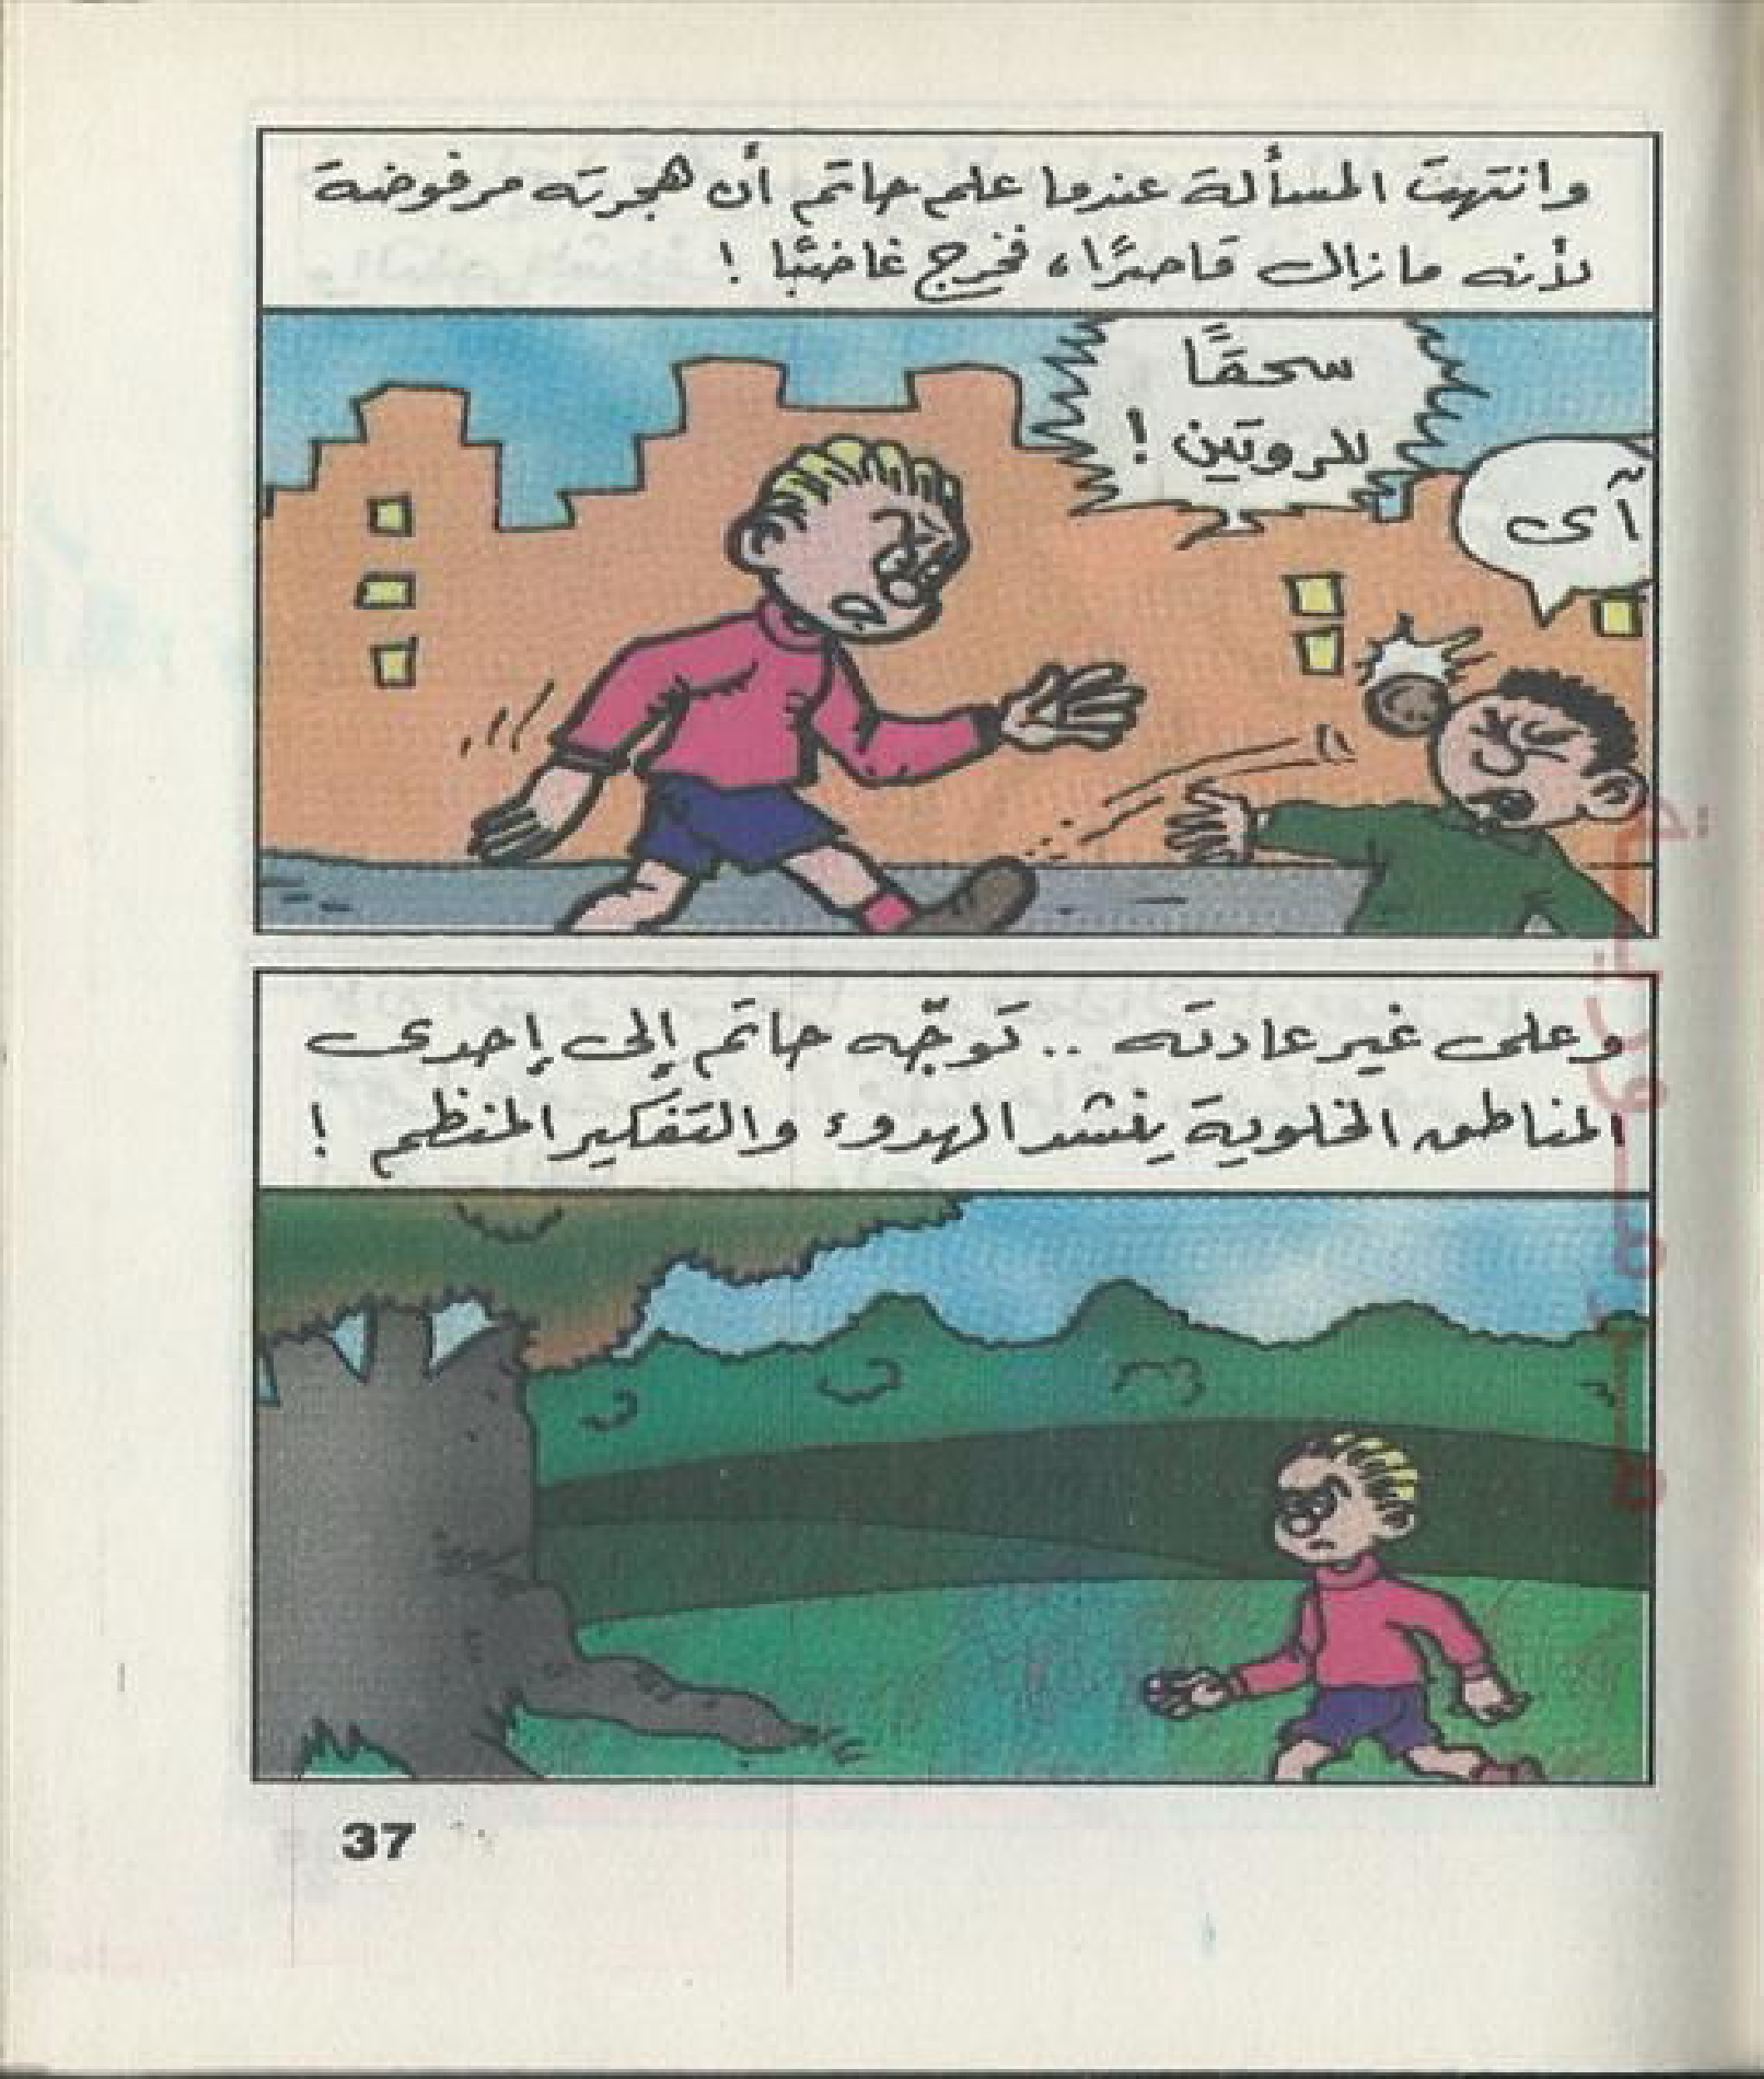 وانتهت المسألة عندما علم حاتم أن هجرته مرفوضة
لأنه مازال قاصرًا، فخرج غاضبًا !
سحقًا
للروتين !
آى
وعلى غير عادته .. توجّه حاتم إلى إحدى
المناطق الخلوية ينشد الهدوء والتفكير المنظم !
37